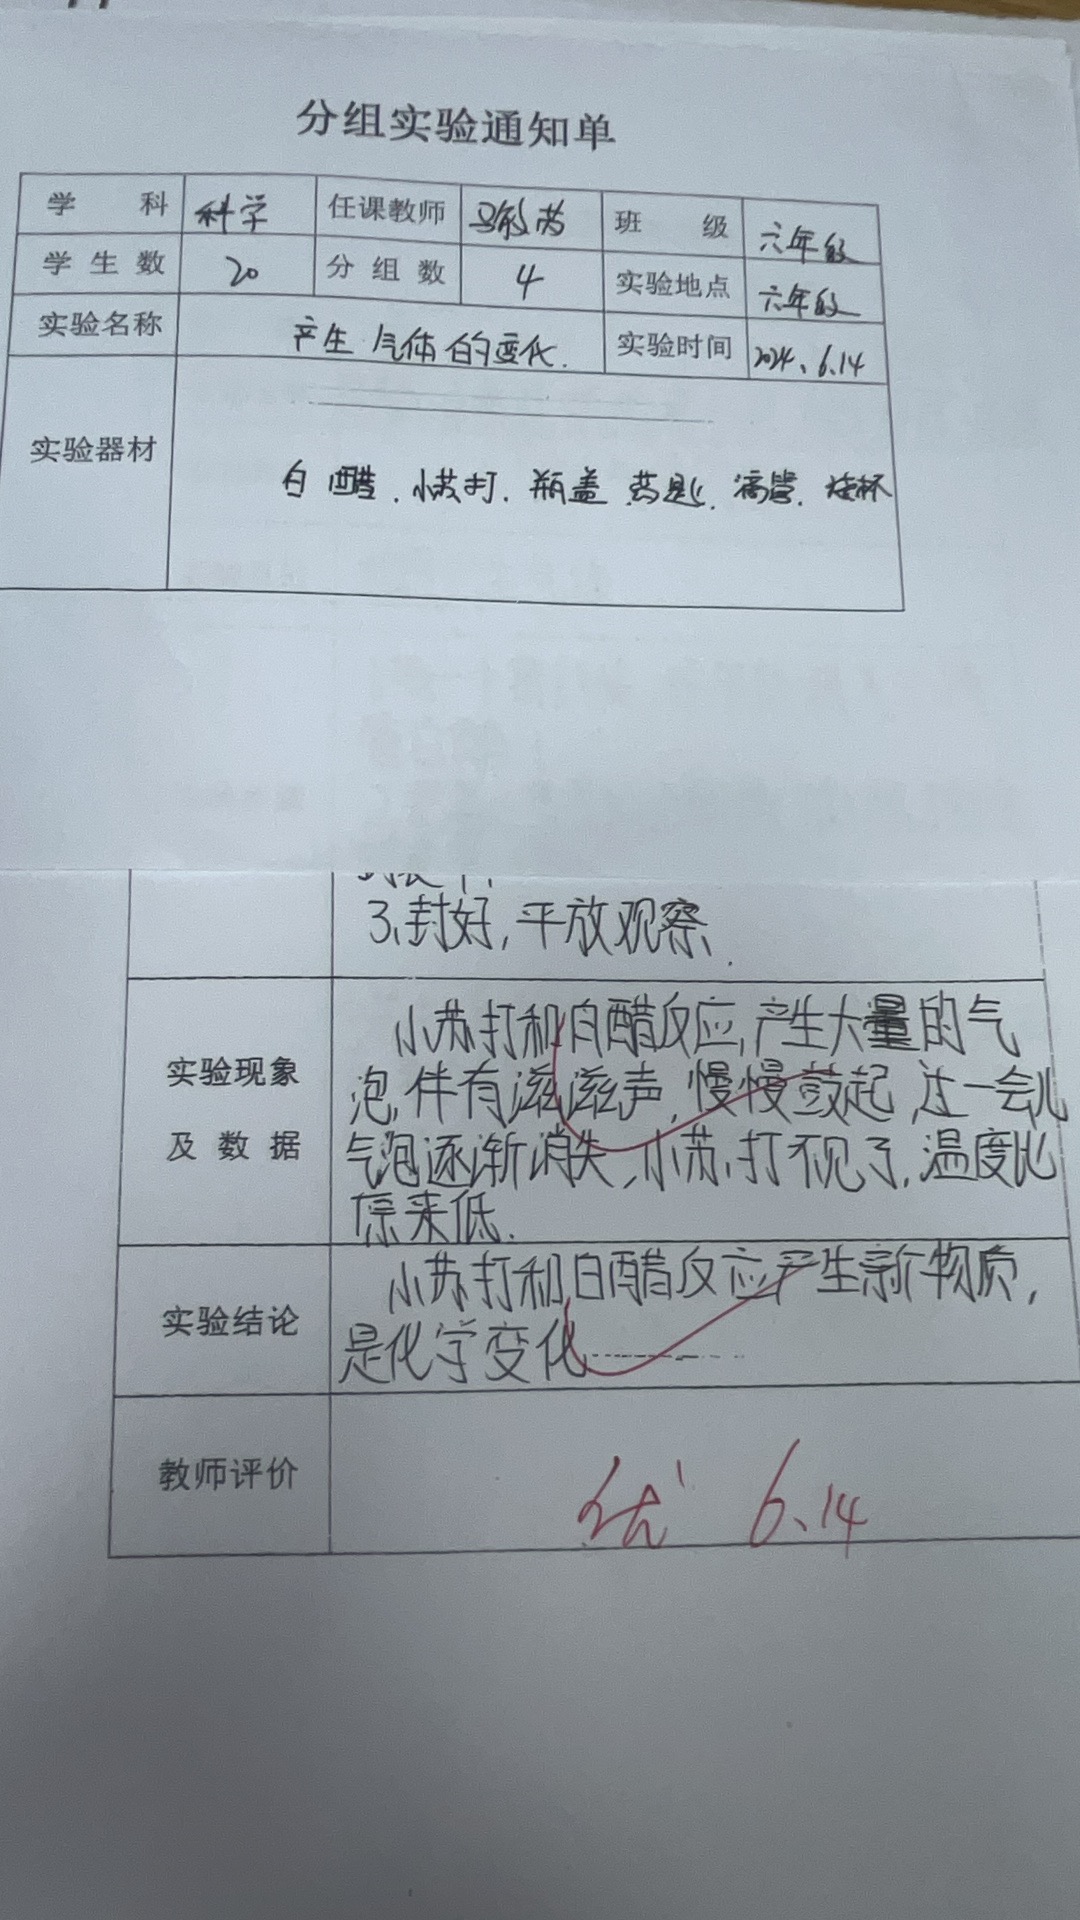 分组实验通知单
学 科 科学 任课教师 班 级 六年级
学生数 20 分组数 4 实验地点 六年级
实验名称 产生气体的变化. 实验时间 2024、6.14
实验器材 白醋、小苏打、瓶盖 药匙、滴管、烧杯
3、封好,平放观察、
小苏打和白醋反应,产生大量的气
实验现象 泡,伴有滋滋声,慢慢鼓起,过一会儿
及数据 气泡逐渐消失,小苏打不见了,温度比
原来低.
小苏打和白醋反应产生新物质,
实验结论 是化学变化
教师评价 优 6.14